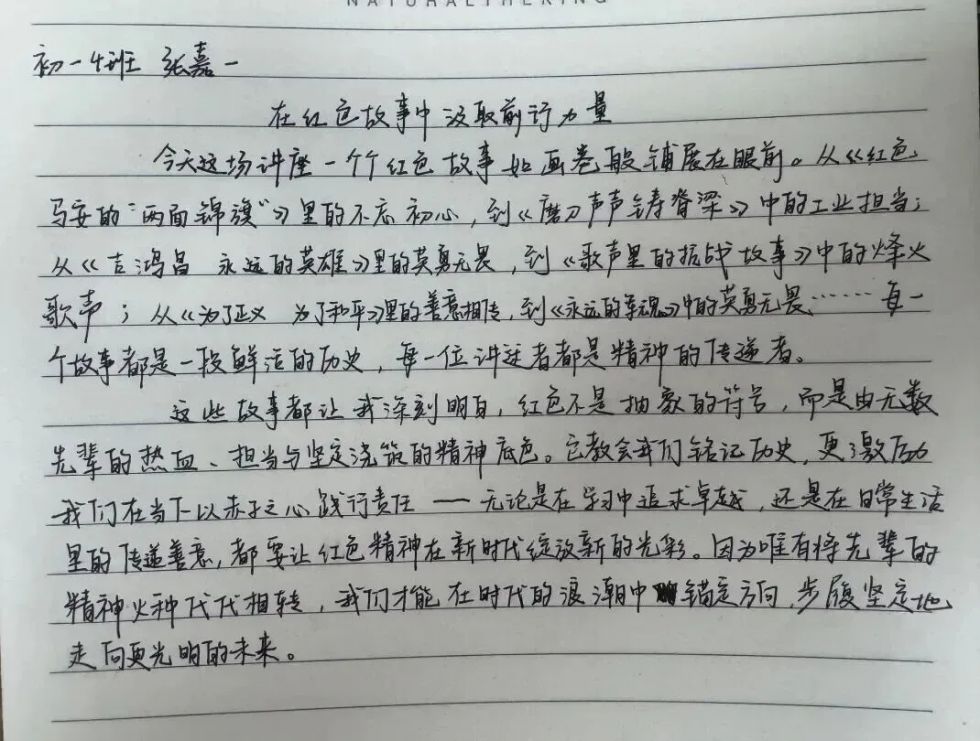 NATURALTHEKING
初一4班 张嘉一
在红色故事中汲取前行力量
今天这场讲座一个个红色故事如画卷般铺展在眼前。从《红色
马安的“两面锦旗”》里的不忘初心，到《磨刀声声铸脊梁》中的工业担当；
从《吉鸿昌 永远的英雄》里的英勇无畏，到《歌声里的抗战故事》中的烽火
歌声；从《为了正义 为了和平》里的善意相传，到《永远的军魂》中的英勇无畏……每一
个故事都是一段鲜活的历史，每一位讲述者都是精神的传递者。
这些故事都让我深刻明白，红色不是抽象的符号，而是由无数
先辈的热血、担当与坚定浇筑的精神底色。它教会我们铭记历史，更激励
我们在当下以赤子之心践行责任——无论是在学习中追求卓越，还是在日常生活
里的传递善意，都要让红色精神在新时代绽放新的光彩。因为唯有将先辈的
精神火种代代相转，我们才能在时代的浪潮中锚定方向，步履坚定地
走向更光明的未来。